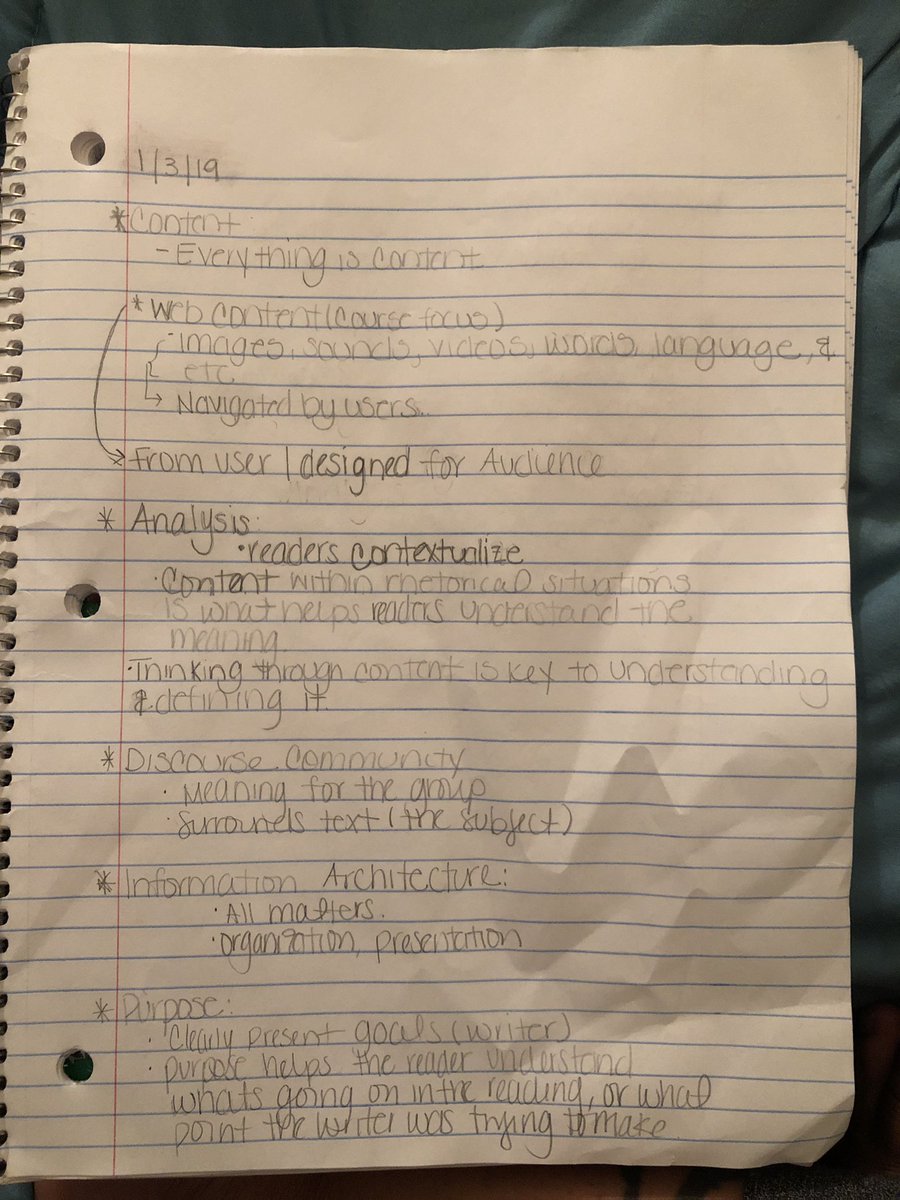 1/3/19
*Content:
- Everything is content
* Web Content (Course focus)
- Images, sounds, videos, words, language, &
etc
→ Navigated by users.
→ From user | designed for Audience
* Analysis:
• readers contextualize
• Content within rhetorical situations
is what helps readers understand the
meaning.
• Thinking through content is key to understanding
& defining it.
* Discourse Community
• Meaning for the group
• Surrounds text (the subject)
* Information Architecture:
• All matters.
• organization, presentation
* Purpose:
• Clearly present goals (writer)
• purpose helps the reader understand
whats going on in the reading, or what
point the writer was trying to make